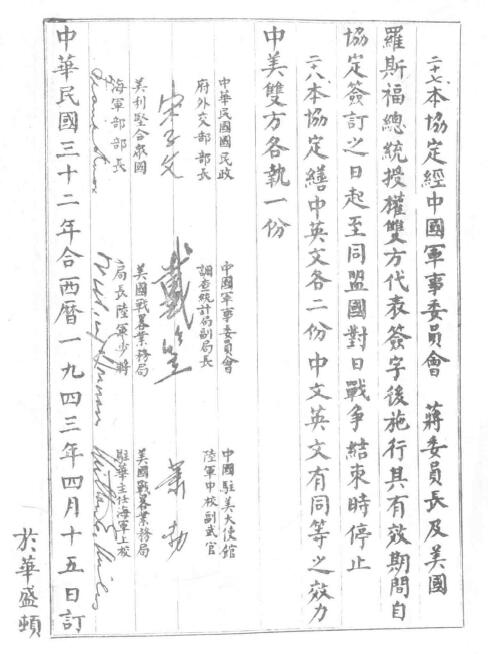 二十七、本協定經中國軍事委員會　蔣委員長及美國
羅斯福總統授權雙方代表簽字後施行其有效期間自
協定簽訂之日起至同盟國對日戰爭結束時停止
二十八、本協定繕中英文各二份中文英文有同等之效力
中美雙方各執一份
中華民國國民政
府外交部部長
宋子文
美利堅合眾國
海軍部部長
Frank Knox
中國軍事委員會
調查統計局副局長
戴笠
美國戰畧業務局
局長陸軍少將
中國駐美大使館
陸軍中校副武官
蕭勃
美國戰畧業務局
駐華主任海軍上校
Milton E. Miles
中華民國三十二年合西曆一九四三年四月十五日訂
於華盛頓